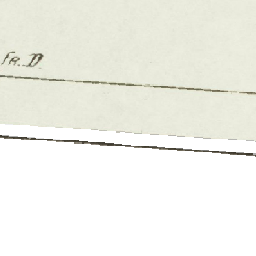 Fr. D.